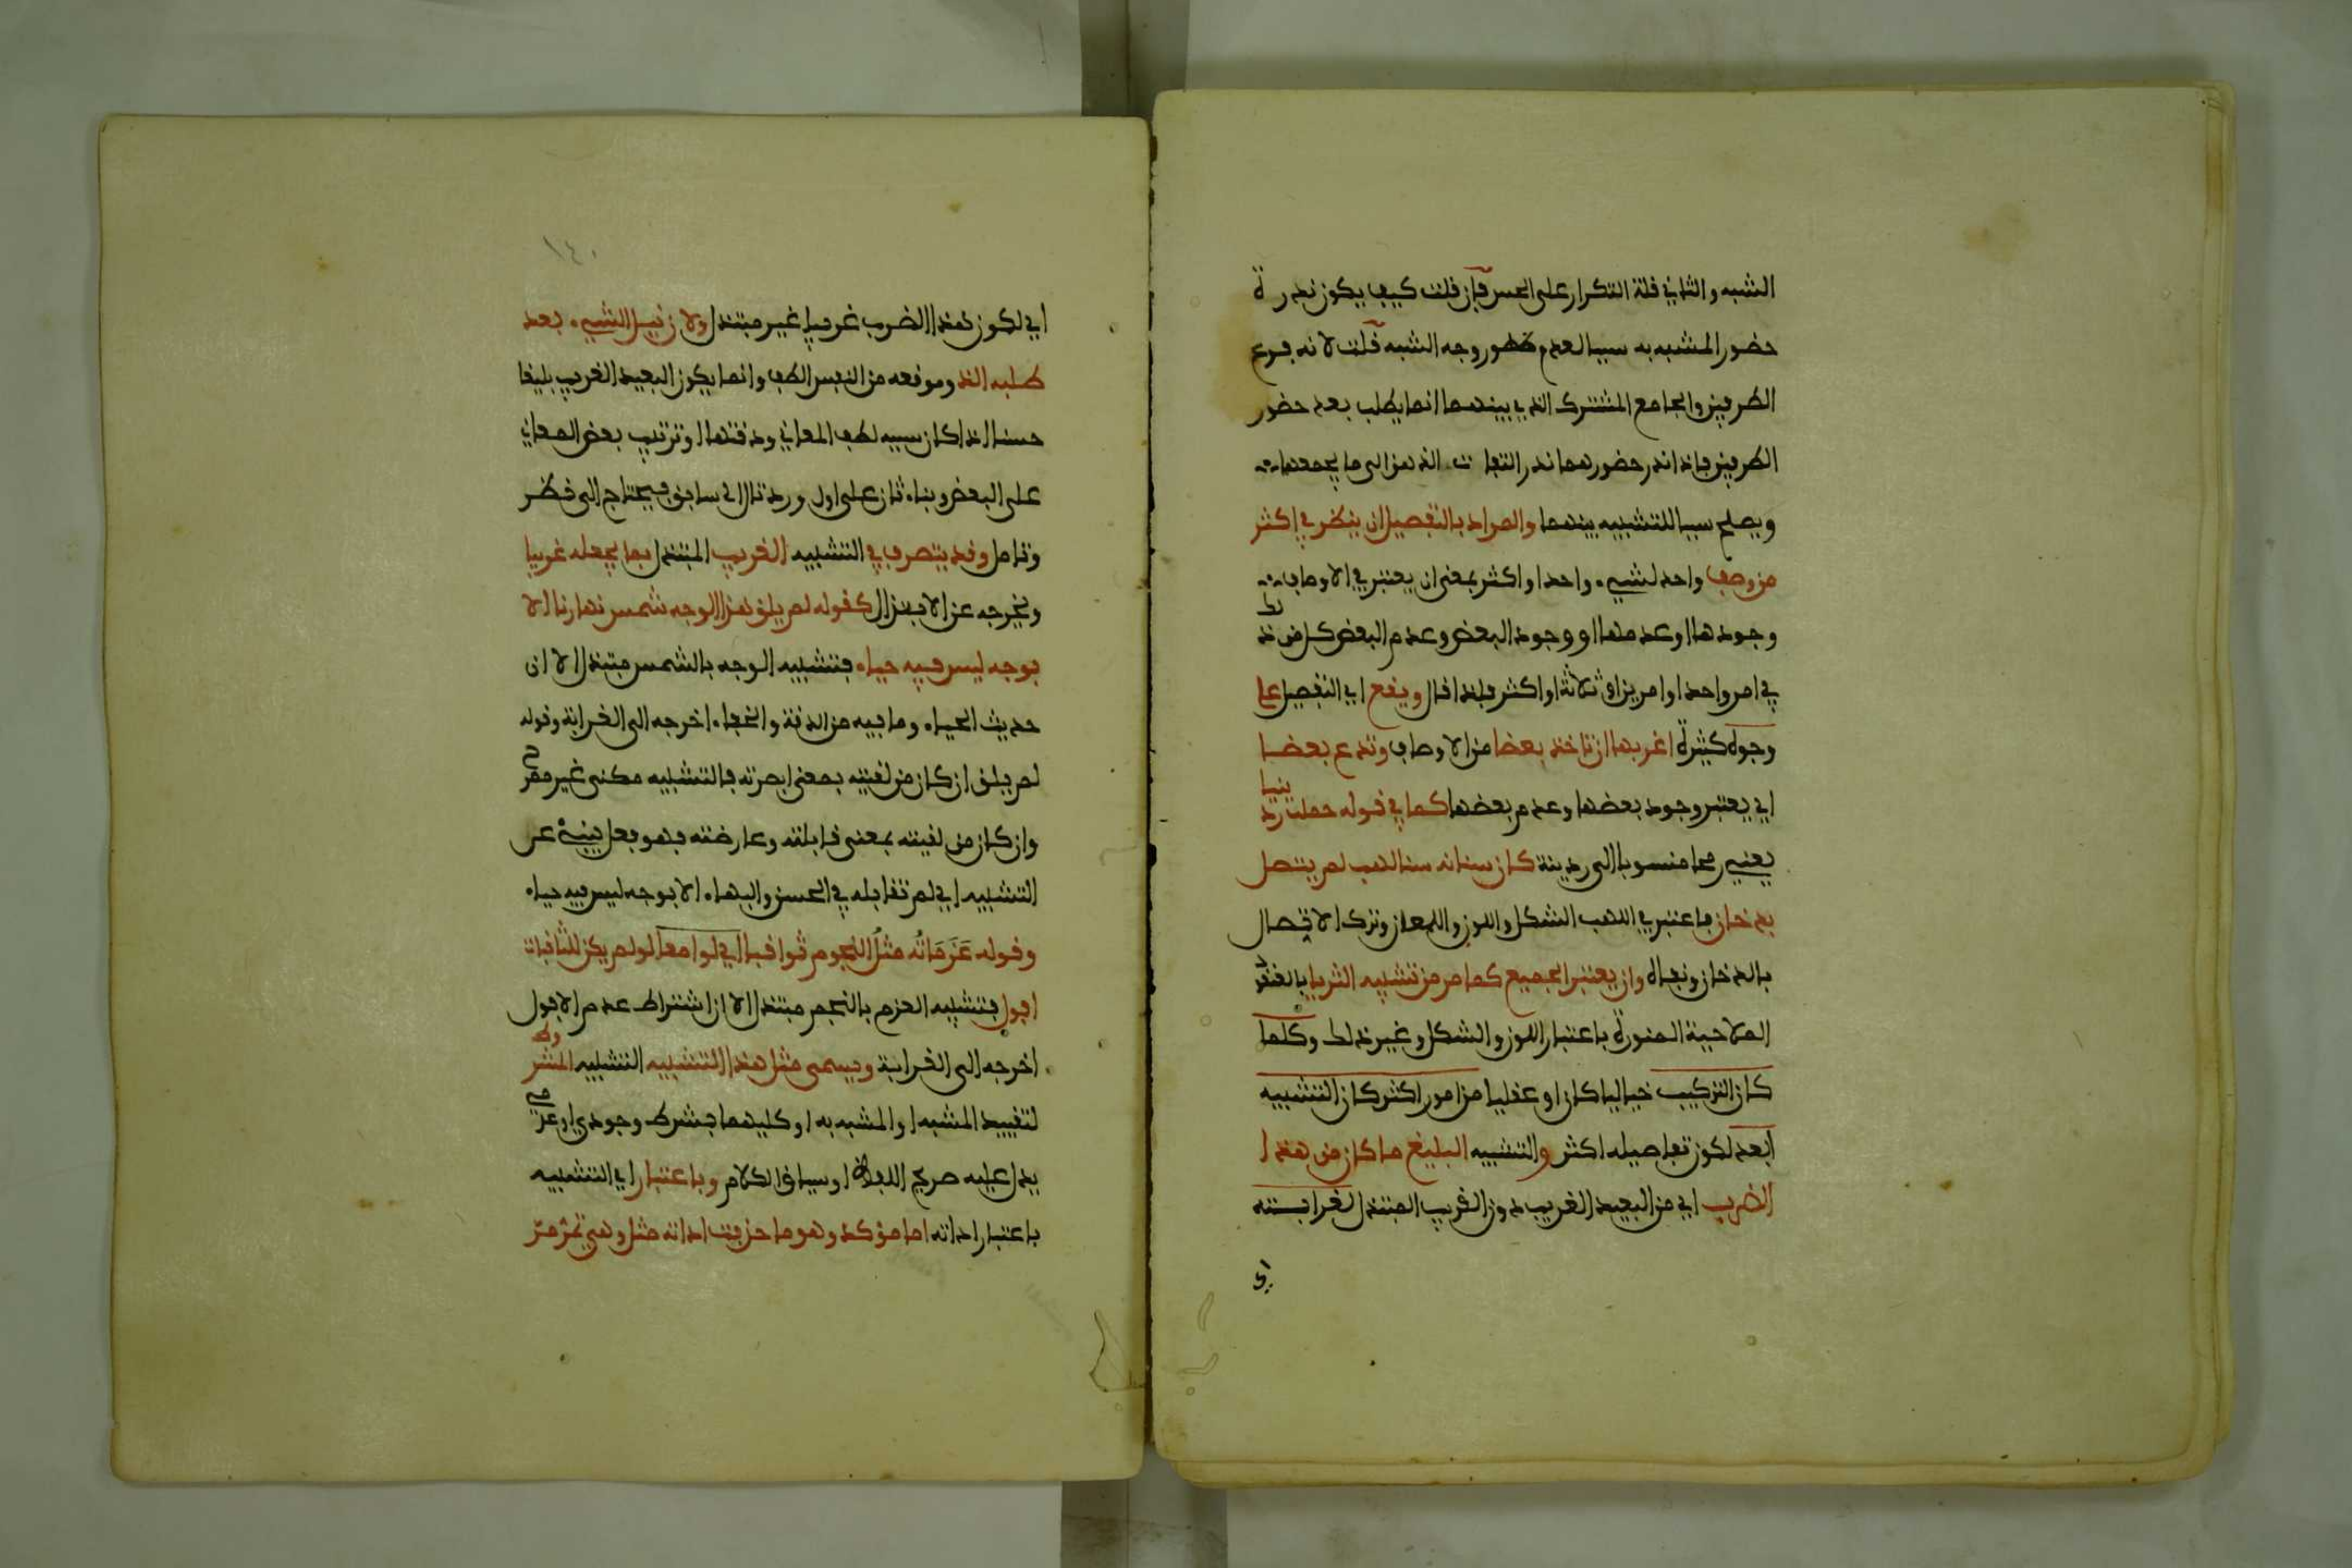 الشبه والثاني قلة التكرار على الحس فإن قلت كيف يكون ندرة
حضور المشبه به سببا لعدم ظهور وجه الشبه قلت لانه فرع
الطرفين والجامع المشترك الذي بينهما انما يطلب بعد حضور
الطرفين فاذا ندر حضورهما ندر التفات الذهن الى ما يجمعهما
ويصلح سببا للتشبيه بينهما والمراد بالتفصيل ان ينظر في اكثر
من وصف واحد لشيء واحد او اكثر بمعنى ان يعتبر في الاوصاف
وجودها او عدمها او وجود البعض وعدم البعض كل من ذلك
في امر واحد او امرين او ثلاثة او اكثر فلذا قال ويقع اي التفصيل على
وجوه كثيرة اعرفها ان تاخذ بعضا من الاوصاف وتدع بعضا
اي يعتبر وجود بعضها وعدم بعضها كما في قوله حملت ردينيا
يعني رمحا منسوبا الى ردينة كان سنانه سنا لهب لم يتصل
بدخان فاعتبر في اللهب الشكل واللون واللمعان وترك الاتصال
بالدخان ونفاه وان يعتبر الجميع كما مر من تشبيه الثريا بالعنقود
الملاحية المنورة باعتبار اللون والشكل وغير ذلك وكلما
كان التركيب خياليا كان او عقليا من امور اكثر كان التشبيه
ابعد لكون تفاصيله اكثر والتشبيه البليغ ما كان من هذا
الضرب اي من البعيد الغريب دون القريب المبتذل لغرابته
اي
١٤٠
اي لكون هذا الضرب غريبا غير مبتذل ولان نيل الشيء بعد
طلبه الذ وموقعه من النفس الطف وانما يكون البعيد الغريب بليغا
حسنا اذا كان سببه لطف المعاني ودقتها او ترتيب بعض المعاني
على البعض وبناء ثان على اول ورد تال الى سابق فيحتاج الى نظر
وتامل وقد يتصرف في التشبيه القريب المبتذل بما يجعله غريبا
ويخرجه عن الابتذال كقوله لم يلق هذا الوجه شمس نهارنا الا
بوجه ليس فيه حياء فتشبيه الوجه بالشمس مبتذل الا ان
حديث الحياء وما فيه من الدقة والخفاء اخرجه الى الغرابة وقوله
لم يلق ان كان من لقيته بمعنى ابصرته فالتشبيه مكنى غير مصرح
وان كان من لقيته بمعنى قابلته وعارضته فهو فعل ينبئ عن
التشبيه اي لم تقابله في الحسن والبهاء الا بوجه ليس فيه حياء
وقوله عزماته مثل النجوم ثواقبا اي لوامعا لو لم يكن للثاقبات
افول فتشبيه العزم بالنجم مبتذل الا ان اشتراط عدم الافول
اخرجه الى الغرابة ويسمى مثل هذا التشبيه التشبيه المشروط
لتقييد المشبه او المشبه به او كليهما بشرط وجودي او عدمي
يدل عليه صريح اللفظ او سياق الكلام وباعتبار اي التشبيه
باعتبار اداته اما مؤكد وهو ما حذفت اداته مثل وهي تمر مر